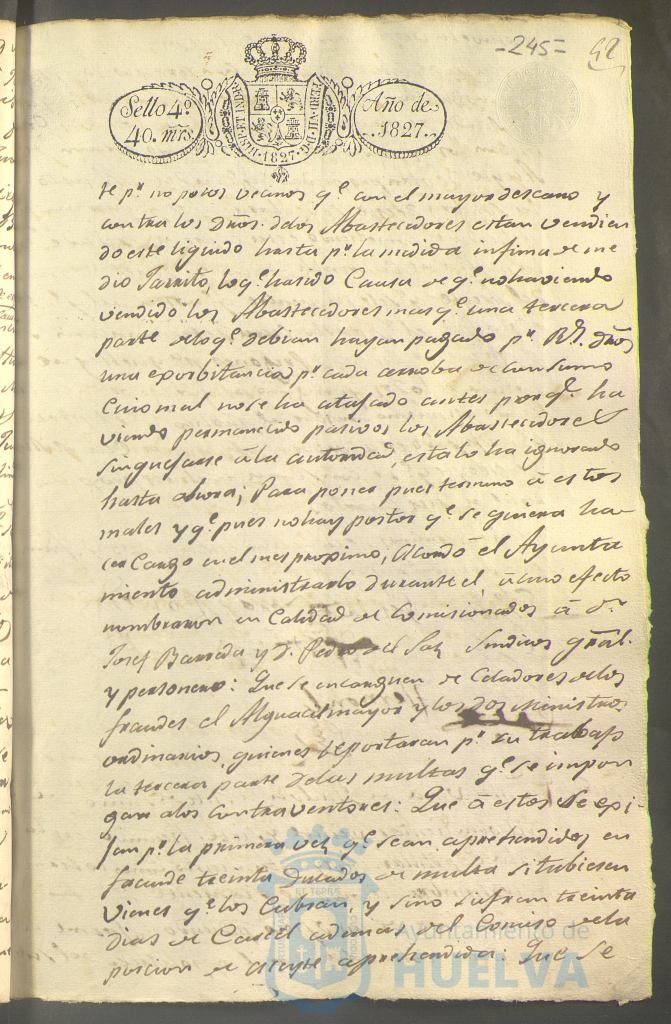 -245=
42
Sello 4º
40. mrs.
HISP. ET IND. R.
FERD. VII. D. G.
·1827·
Año de
1827.
te pr. no pocos vecinos qe. con el mayor descaro y
contra los Dros. delos Abastecedores estan vendien
do este liquido hasta pr. la medida infima de me
dio Jarrito, lo qe. ha sido Causa de qe. no haviendo
vendido los Abastecedores mas qe. una tercera
parte delo qe. debian hayan pagado pr. Rs. dros
una exorbitancia pr. cada arroba de consumo
Cuio mal no se ha atajado antes porqe. ha
viendo permanecido pasivos los Abastecedores
sin quejarse â la autoridad, esta lo ha ignorado
hasta ahora; Para poner pues termino â estos
males y qe. pues no hay postor qe. se quiera ha-
cer Cargo en el mes proximo, Acordó el Ayunta
miento administrarlo durante el, â cuio efecto
nombraron en Calidad de Comisionados â Dn.
Josef Barreda y D. Pedro del Saz Sindicos gral.
y personero: Que se encarguen de Celadores delos
fraudes el Alguacil mayor y los dos Ministros
ordinarios, quienes reportaran pr. su trabajo
la tercera parte delas multas qe. se impon
gan alos Contraventores: Que â estos se exi-
jan pr. la primera vez qe. sean aprehendidos en
fraude treinta ducados de multa si tubiesen
Vienes qe. los Cubran, y sino sufran treinta
dias de Carcel ademas del Comiso dela
porcion de aceyte aprehendida: Que se
Ayuntamiento de
HUELVA